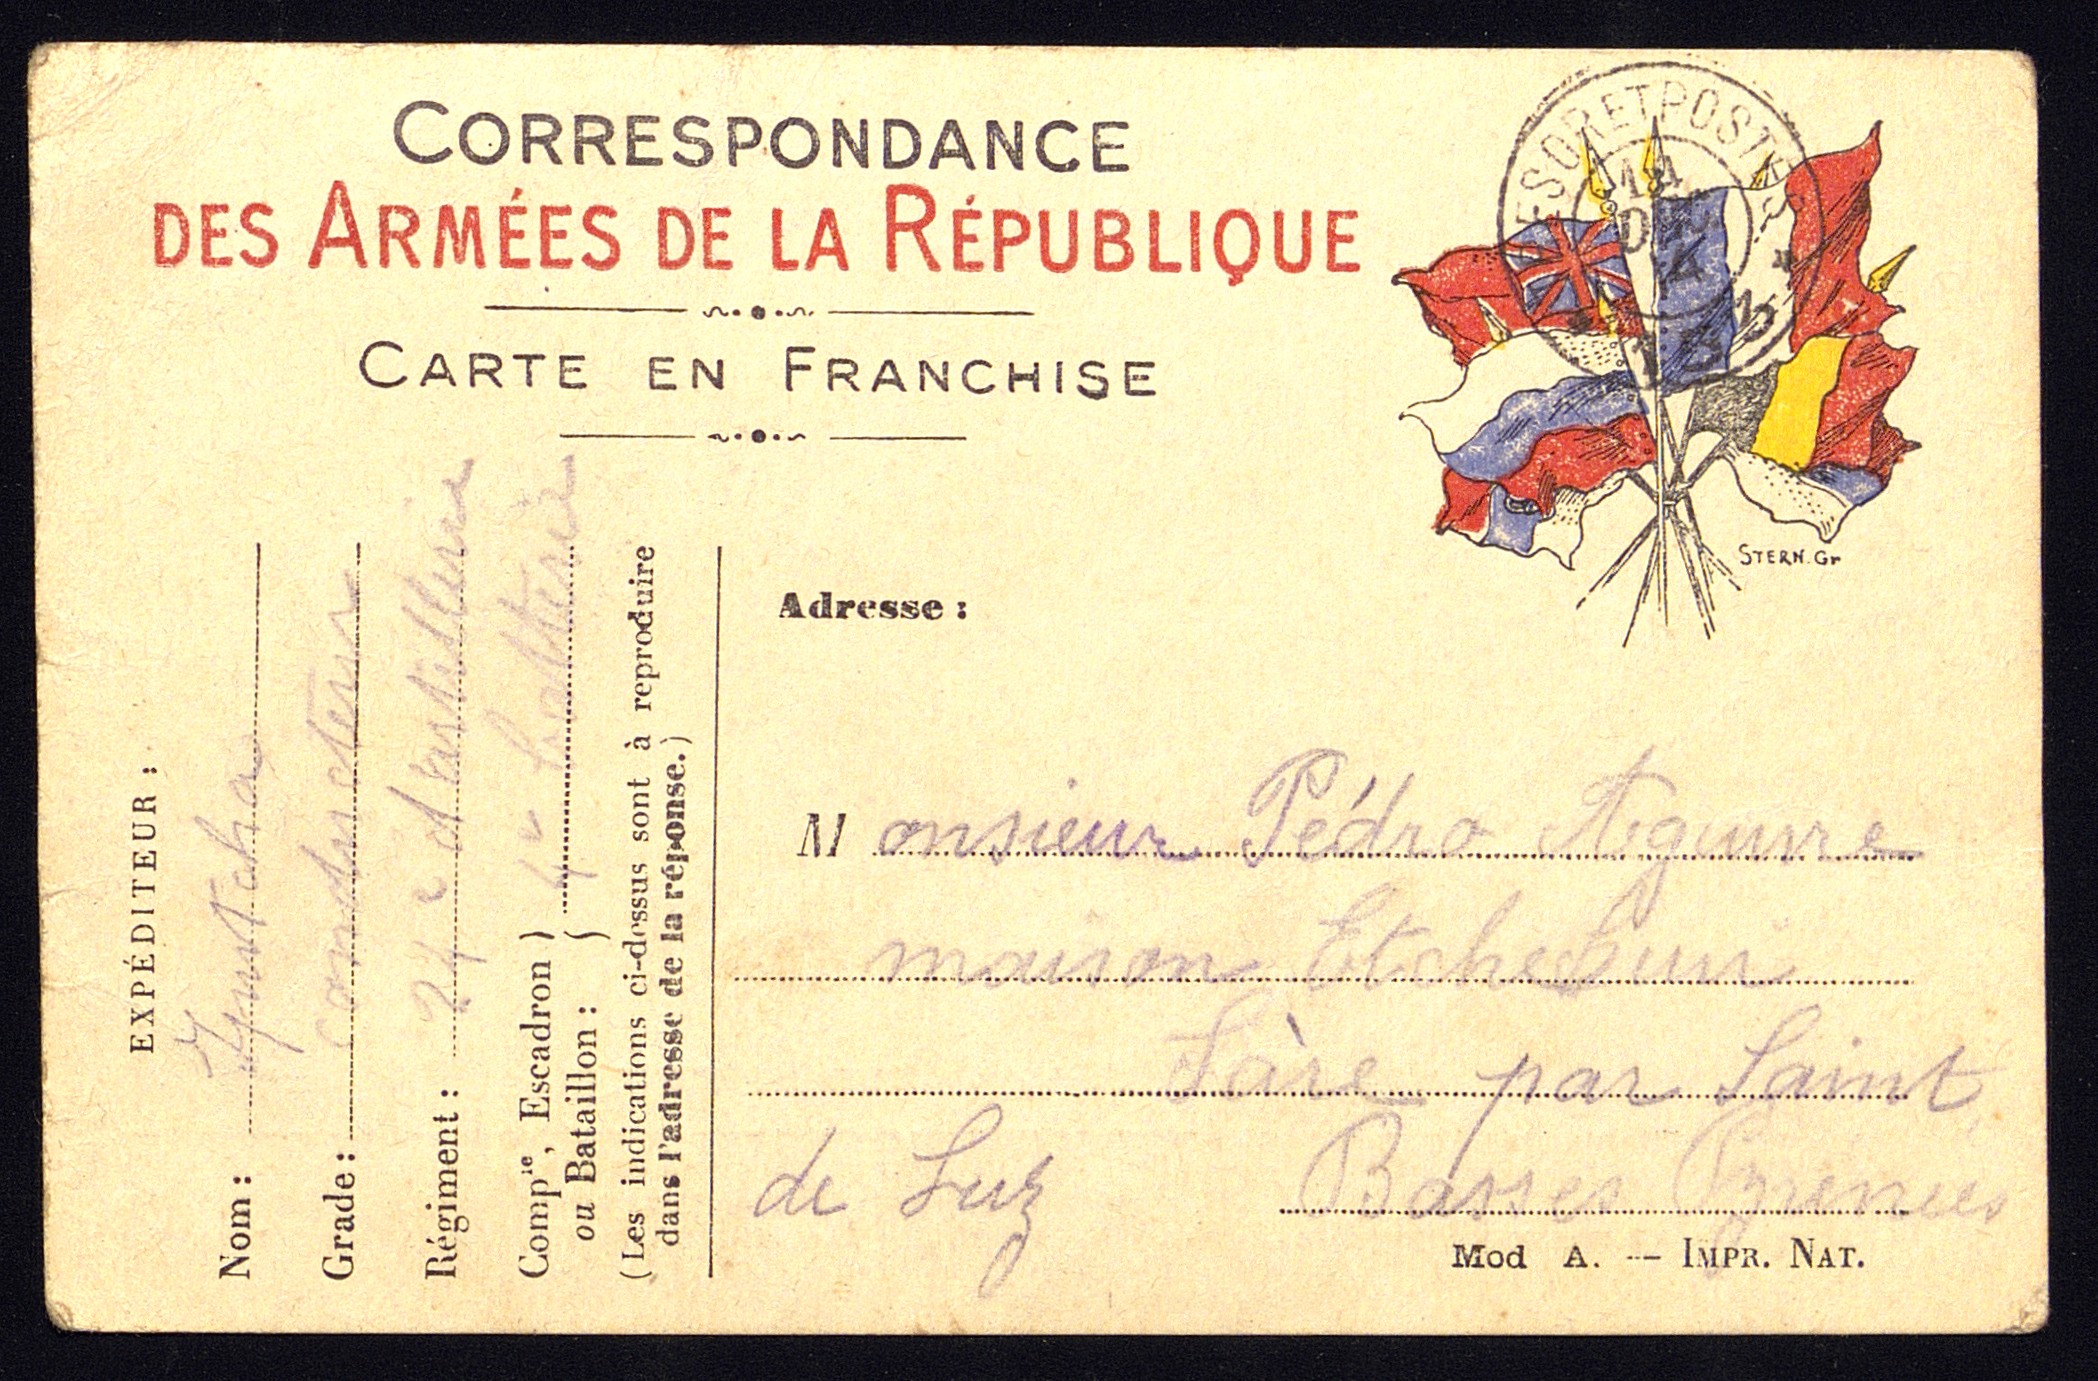 CORRESPONDANCE
DES ARMÉES DE LA RÉPUBLIQUE
CARTE EN FRANCHISE
TRESOR ET POSTES
STERN. Gr
EXPÉDITEUR :
Nom :
Grade : conducteur
Régiment : 24e d'artillerie
Compie, Escadron
ou Bataillon : 4e batterie
(Les indications ci-dessus sont à reproduire
dans l'adresse de la réponse.)
Adresse :
Monsieur Pédro Aguirre
maison
par Saint
de Luz Basses Pyrenees
Mod A. -- IMPR. NAT.